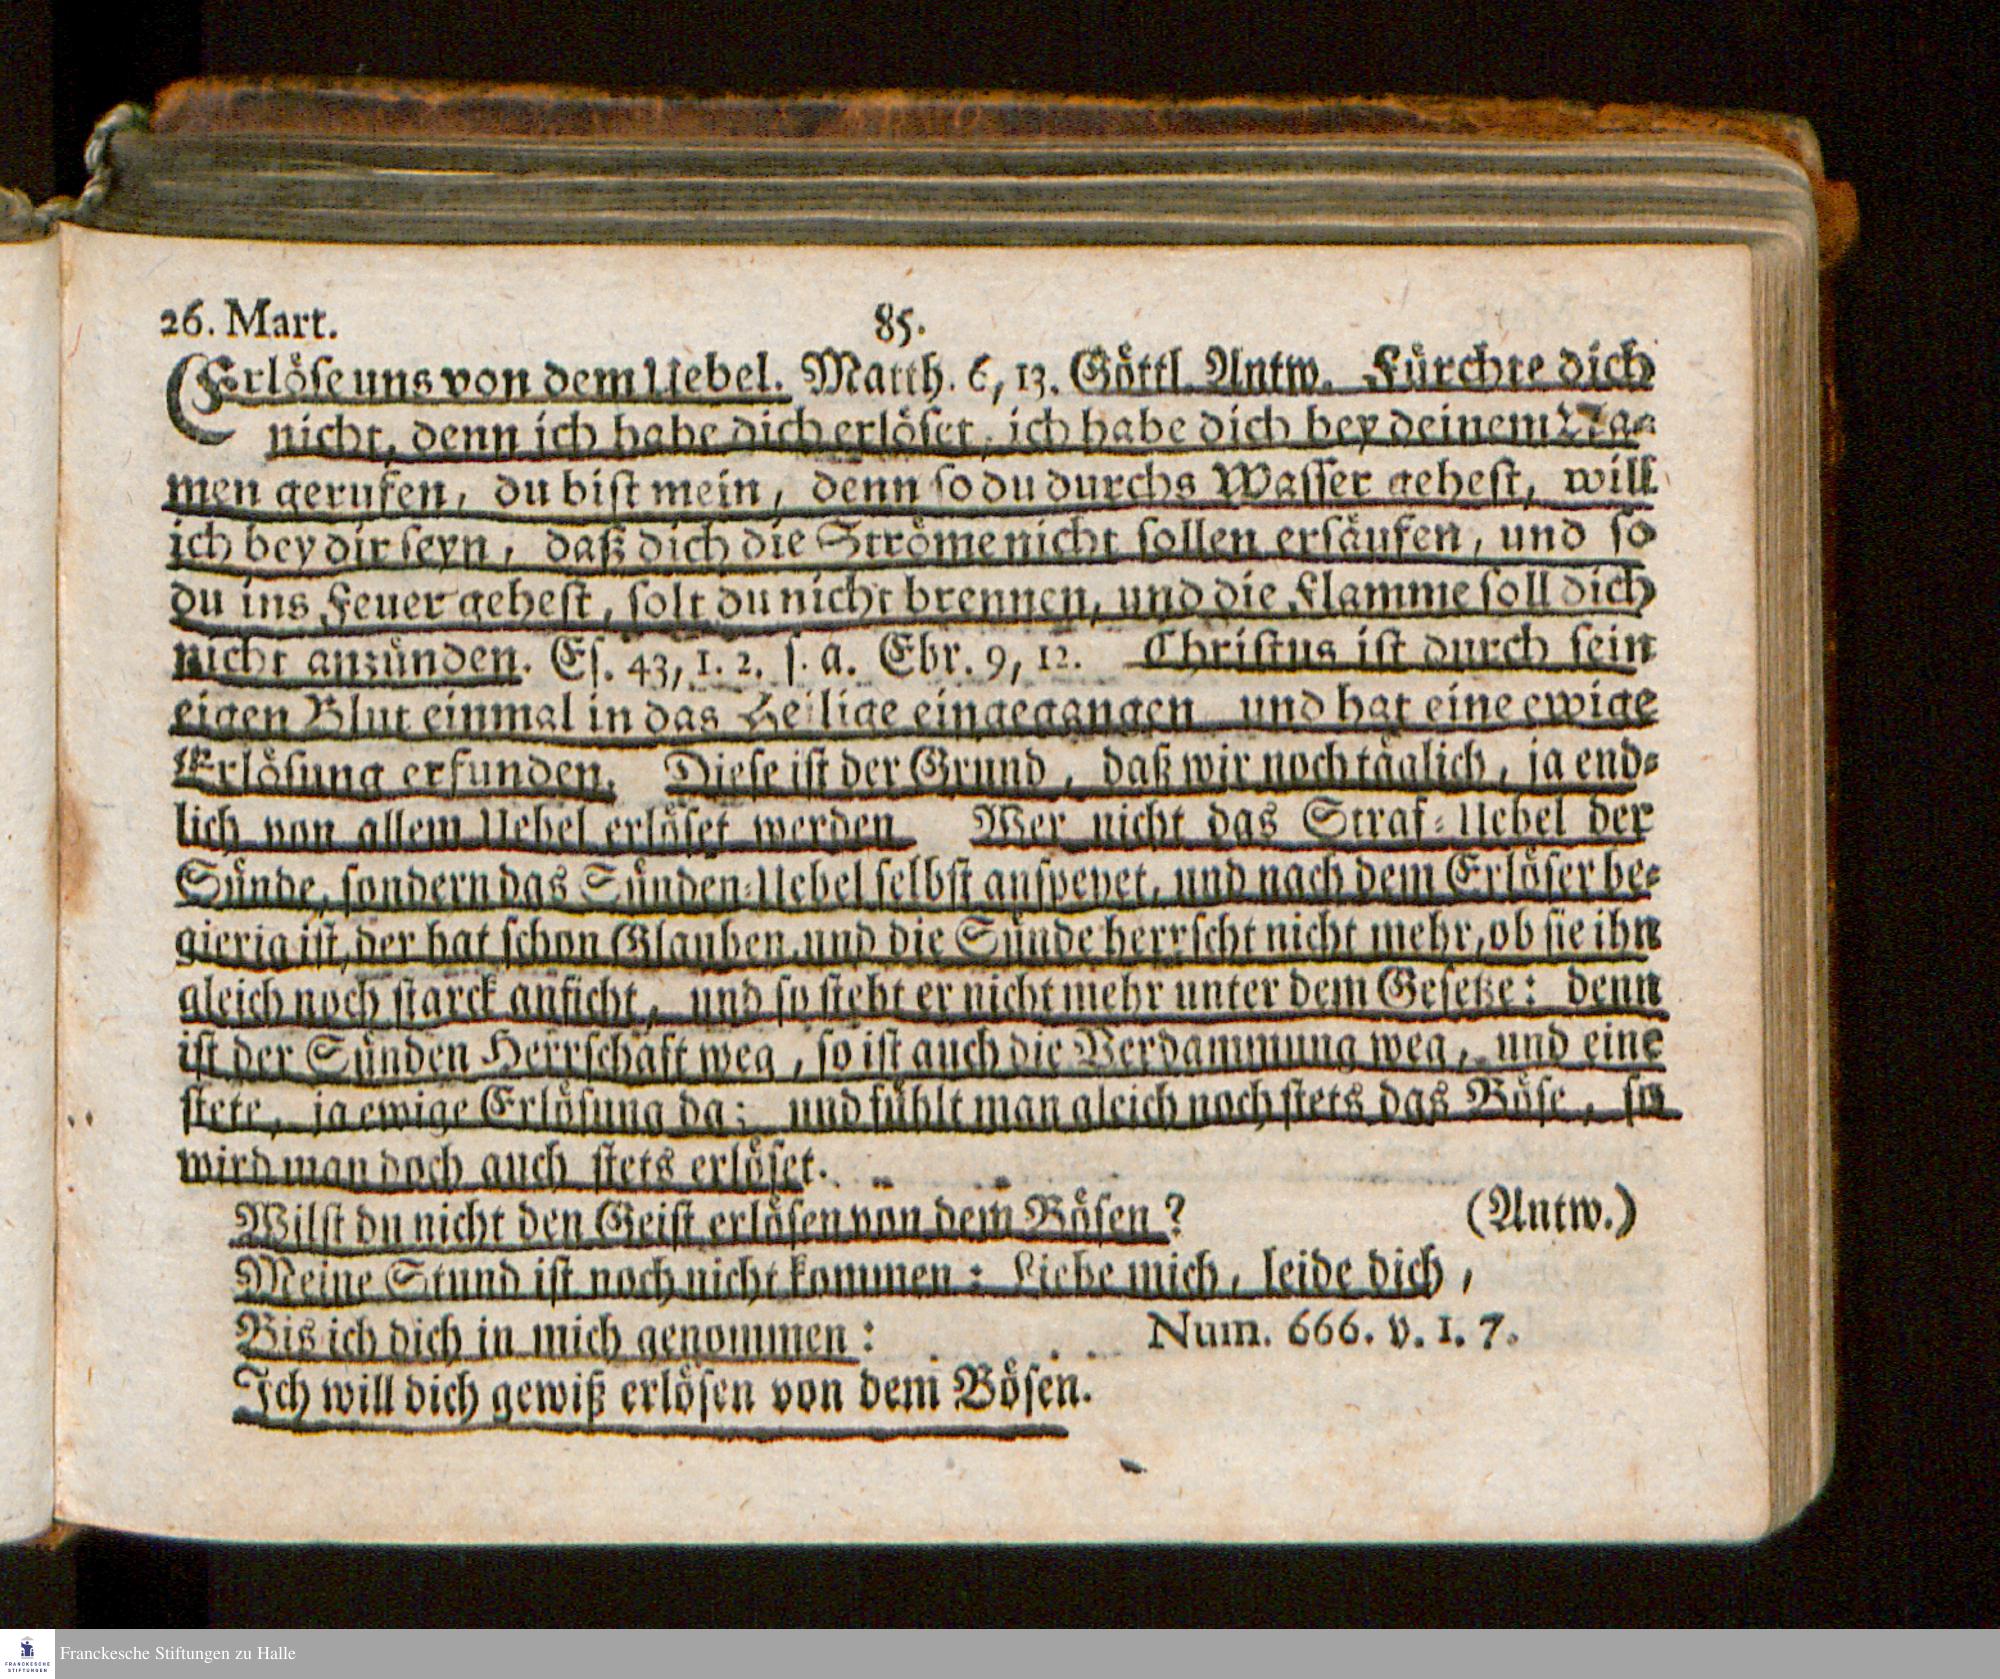 26. Mart. 85.
Erlöse uns von dem Uebel. Matth. 6, 13. Göttl. Antw. Fürchte dich
nicht, denn ich habe dich erlöset, ich habe dich bey deinem Na-
men gerufen, du bist mein, denn so du durchs Wasser gehest, will
ich bey dir seyn, daß dich die Ströme nicht sollen ersäufen, und so
du ins Feuer gehest, solt du nicht brennen, und die Flamme soll dich
nicht anzünden. Es. 43, 1. 2. s. a. Ebr. 9, 12. Christus ist durch sein
eigen Blut einmal in das Heilige eingegangen und hat eine ewige
Erlösung erfunden. Diese ist der Grund, daß wir noch täglich, ja end-
lich von allem Uebel erlöset werden Wer nicht das Straf-Uebel der
Sünde, sondern das Sünden-Uebel selbst anspeyet, und nach dem Erlöser be-
gierig ist, der hat schon Glauben, und die Sünde herrscht nicht mehr, ob sie ihn
gleich noch starck anficht, und so steht er nicht mehr unter dem Gesetze: denn
ist der Sünden Herrschaft weg, so ist auch die Verdammung weg, und eine
stete, ja ewige Erlösung da; und fühlt man gleich noch stets das Böse, so
wird man doch auch stets erlöset.
Wilst du nicht den Geist erlösen von dem Bösen? (Antw.)
Meine Stund ist noch nicht kommen: Liebe mich, leide dich,
Bis ich dich in mich genommen: Num. 666. v. 1. 7.
Ich will dich gewiß erlösen von dem Bösen.
FRANCKESCHE
STIFTUNGEN
Franckesche Stiftungen zu Halle